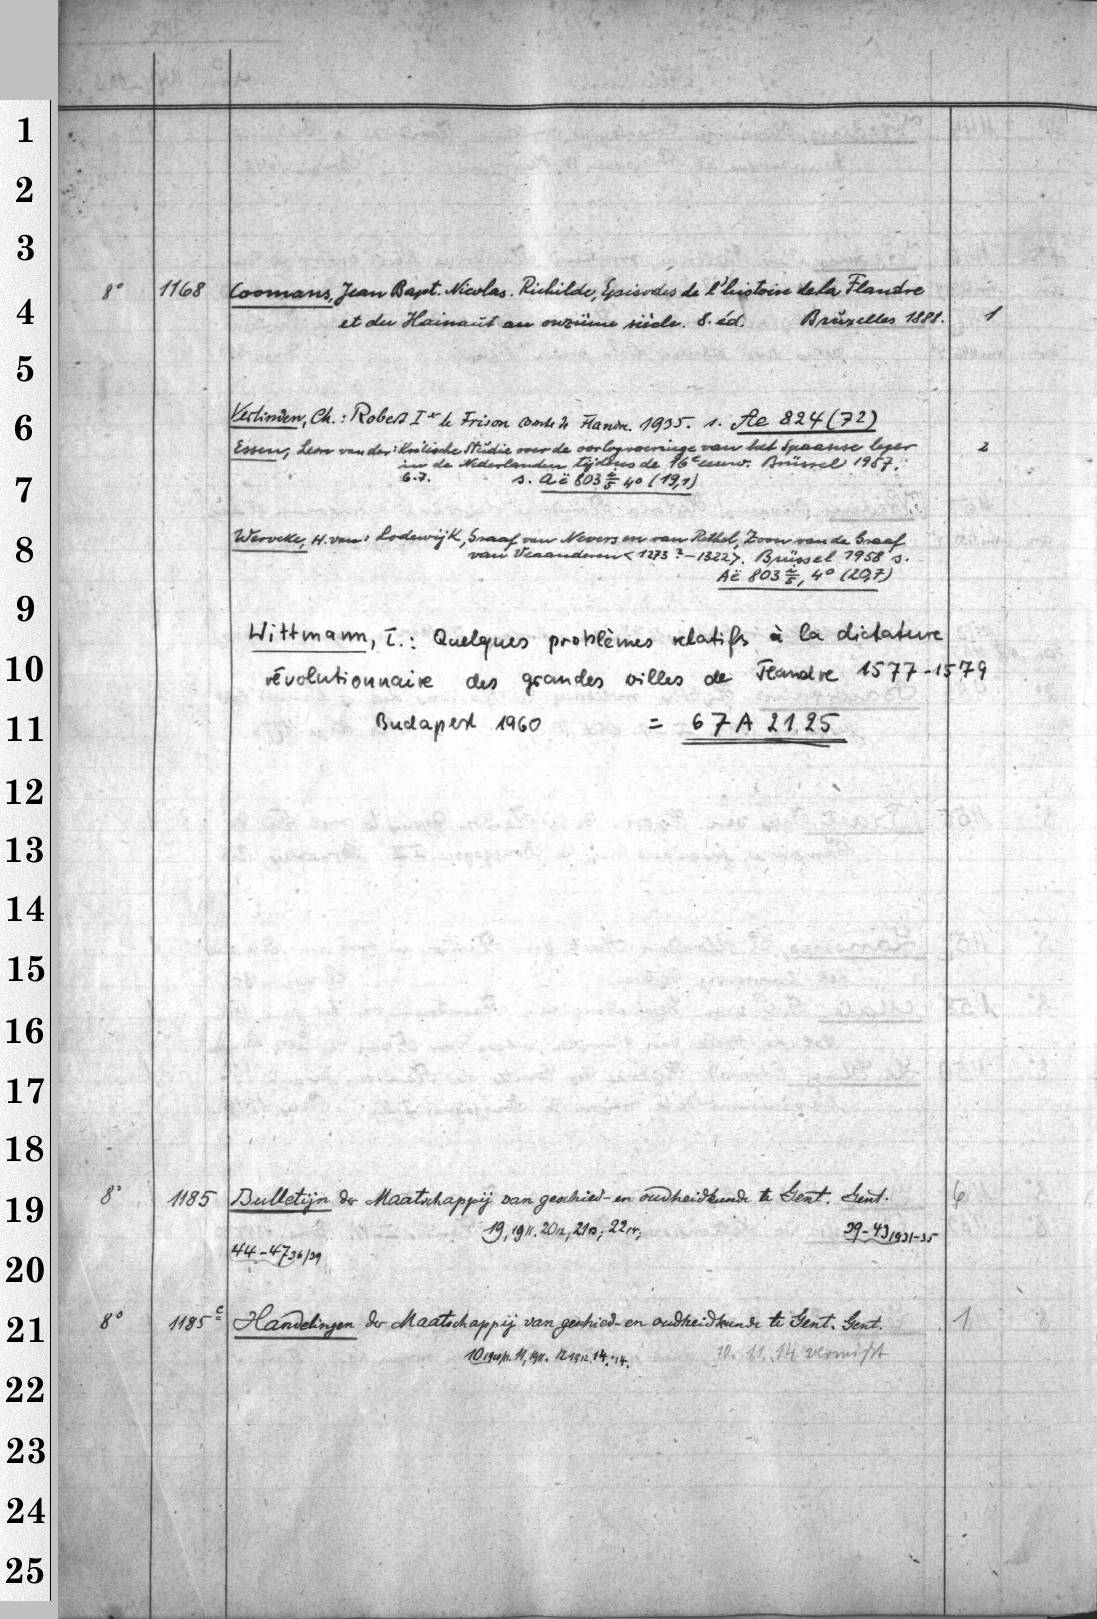 1
2
3
8° 1168 Coomans, Jean Bapt. Nicolas. Richilde, Episodes de l'histoire de la Flandre
4
et du Hainaut au onzième siècle. 8. éd. Brüxelles 1888. 1
5
6
Verlinden, Ch.: Robert Ier le Frison comte de Flandre. 1935. s. Ae 824 (72)
Essen, Leon van der: Kritische Stüdie over de oorlogvoeringe van het Spaanse leger 2
in de Nederlanden tijdens de 16e eeuw. Brüssel 1957.
7
6.7. s. Aë 803 2/5 4° (19,1)
8
Werveke, H. van: Lodewijk, Graaf van Nevers en van Rethel, Zoon van de Graaf
van Vlaanderen <1273?-1322>. Brüssel 1958 s.
Aë 803 2/5, 4° (20,7)
9
Wittmann, T.: Quelques problèmes relatifs à la dictature
10
révolutionnaire des grandes villes de Flandre 1577-1579
11
Budapest 1960 = 67 A 2125
12
13
14
15
16
17
18
8° 1185 Bulletijn der Maatschappij van geschied- en oudheidkunde te Gent. Gent. 6
19
19, 1911. 20 12, 21 13; 22 14; 39-43 1931-35
20
44-47 36/39
8° 1185 c Handelingen der Maatschappij van geschied- en oudheidkunde te Gent. Gent. 1
21
10 1910/11. 11, 1911. 12 1912. 14. '14. 10. 11. 14 vermißt
22
23
24
25